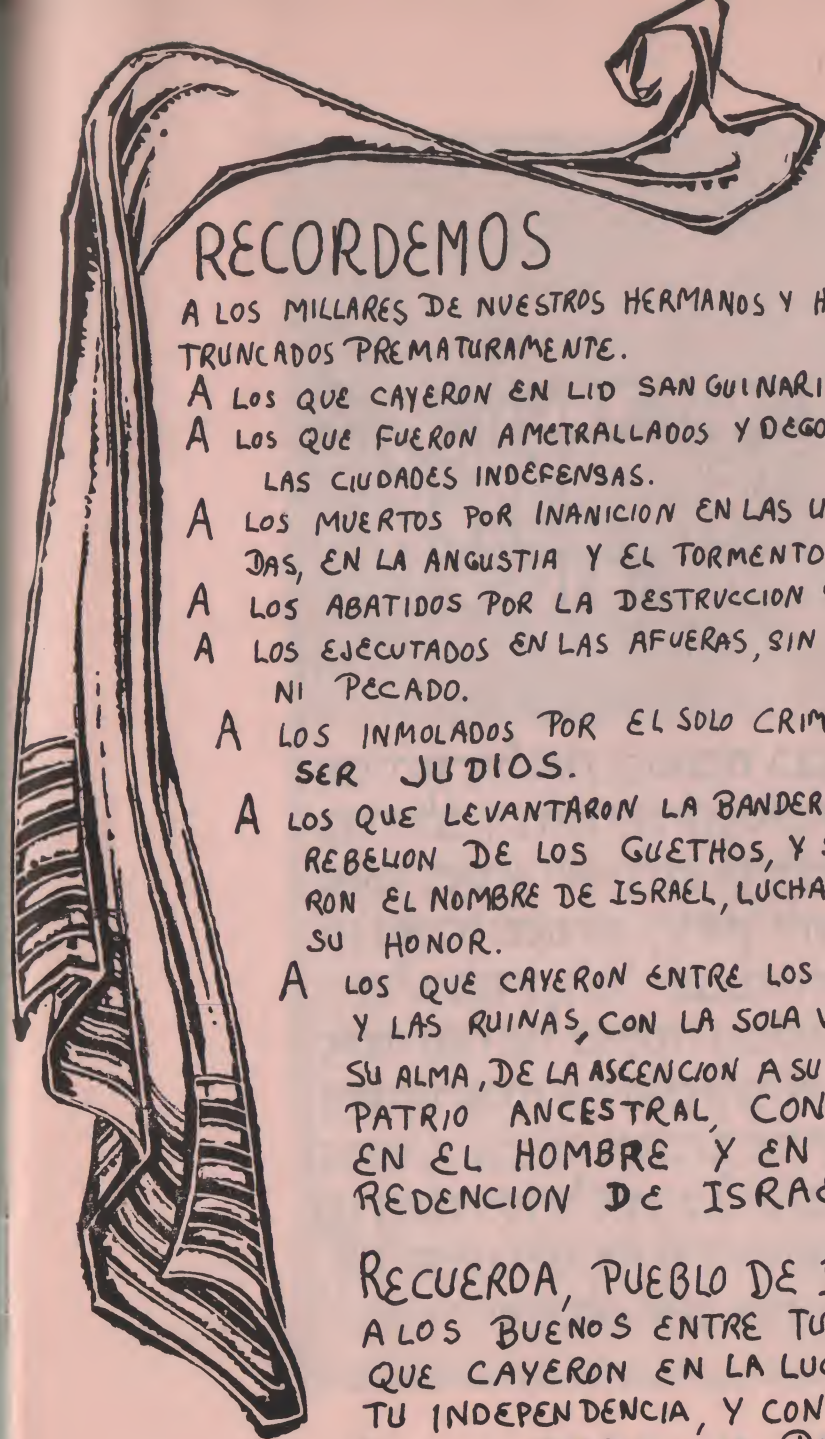 RECORDEMOS
A LOS MILLARES DE NUESTROS HERMANOS Y H
TRUNCADOS PREMATURAMENTE.
A LOS QUE CAYERON EN LID SANGUINARI
A LOS QUE FUERON AMETRALLADOS Y DEGO
LAS CIUDADES INDEFENSAS.
A LOS MUERTOS POR INANICION EN LAS U
DAS, EN LA ANGUSTIA Y EL TORMENTO
A LOS ABATIDOS POR LA DESTRUCCION
A LOS EJECUTADOS EN LAS AFUERAS, SIN
NI PECADO.
A LOS INMOLADOS POR EL SOLO CRIM
SER JUDIOS.
A LOS QUE LEVANTARON LA BANDER
REBELION DE LOS GUETHOS, Y S
RON EL NOMBRE DE ISRAEL, LUCHA
SU HONOR.
A LOS QUE CAYERON ENTRE LOS
Y LAS RUINAS, CON LA SOLA V
SU ALMA, DE LA ASCENCION A SU
PATRIO ANCESTRAL, CON
EN EL HOMBRE Y EN
REDENCION DE ISRAE
RECUERDA, PUEBLO DE I
A LOS BUENOS ENTRE TU
QUE CAYERON EN LA LUC
TU INDEPENDENCIA, Y CON